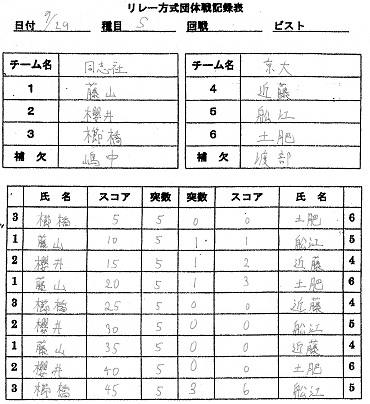 リレー方式団体戦記録表
日付 9/29 種目 S 回戦 ピスト
チーム名 同志社 チーム名 京大
1 藤山 4 近藤
2 櫻井 5 舩江
3 櫛橋 6 土肥
補欠 嶋中 補欠 渡部
氏名 スコア 突数 突数 スコア 氏名
3 櫛橋 5 5 0 0 土肥 6
1 藤山 10 5 1 1 舩江 5
2 櫻井 15 5 1 2 近藤 4
1 藤山 20 5 1 3 土肥 6
3 櫛橋 25 5 0 0 近藤 4
2 櫻井 30 5 0 0 舩江 5
1 藤山 35 5 0 0 近藤 4
2 櫻井 40 5 0 0 土肥 6
3 櫛橋 45 5 3 6 舩江 5